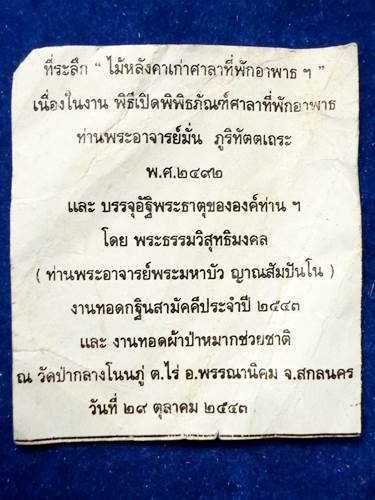 ที่ระลึก “ ไม้หลังคาเก่าศาลาที่พักอาพาธ ฯ ”
เนื่องในงาน พิธีเปิดพิพิธภัณฑ์ศาลาที่พักอาพาธ
ท่านพระอาจารย์มั่น ภูริทัตตเถระ
พ.ศ.๒๔๙๒
และ บรรจุอัฐิพระธาตุขององค์ท่าน ฯ
โดย พระธรรมวิสุทธิมงคล
( ท่านพระอาจารย์พระมหาบัว ญาณสัมปันโน )
งานทอดกฐินสามัคคีประจำปี ๒๕๔๓
และ งานทอดผ้าป่าหมากช่วยชาติ
ณ วัดป่ากลางโนนภู่ ต.ไร่ อ.พรรณานิคม จ.สกลนคร
วันที่ ๒๙ ตุลาคม ๒๕๔๓